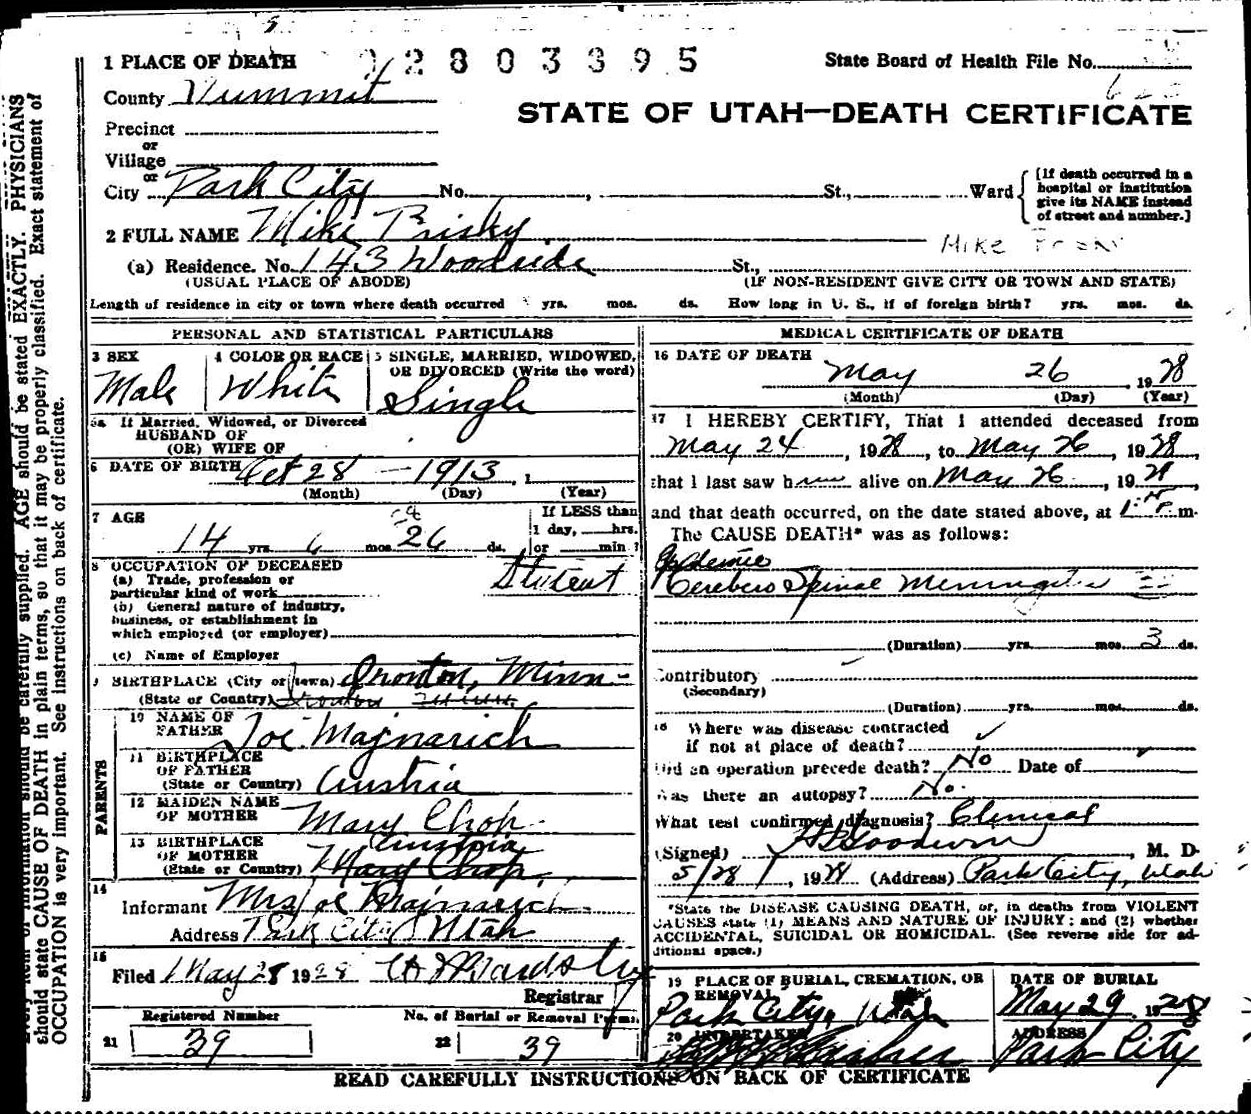 1 PLACE OF DEATH 2803395 State Board of Health File No.
County Summit
STATE OF UTAH—DEATH CERTIFICATE
Precinct
or
Village
or
City Park City No. , St., Ward
[If death occurred in a hospital or institution give its NAME instead of street and number.]
2 FULL NAME Mike Prisky
Mike
(a) Residence. No. 143 Woodside St.,
(USUAL PLACE OF ABODE) (IF NON-RESIDENT GIVE CITY OR TOWN AND STATE)
Length of residence in city or town where death occurred yrs. mos. ds. How long in U. S., if of foreign birth? yrs. mos. ds.
PERSONAL AND STATISTICAL PARTICULARS
3 SEX 4 COLOR OR RACE 5 SINGLE, MARRIED, WIDOWED,
OR DIVORCED (Write the word)
Male White Single
5a If Married, Widowed, or Divorced
HUSBAND OF
(OR) WIFE OF
6 DATE OF BIRTH Oct 28 — 1913, 1
(Month) (Day) (Year)
7 AGE If LESS than
1 day, hrs.
14 yrs. 6 mos. 28 26 ds. or min?
8 OCCUPATION OF DECEASED Student
(a) Trade, profession or
particular kind of work
(b) General nature of industry,
business, or establishment in
which employed (or employer)
(c) Name of Employer
9 BIRTHPLACE (City or town) Ironton, Minn-
(State or Country) Ironton Minn.
PARENTS
10 NAME OF
FATHER Joe Majnarich
11 BIRTHPLACE
OF FATHER
(State or Country) Austria
12 MAIDEN NAME
OF MOTHER Mary Chop
13 BIRTHPLACE Austria
OF MOTHER
(State or Country) Mary Chop
14
Informant Mrs Joe Majnarich
Address Park City Utah
15
Filed May 28 1928
Registrar
Registered Number No. of Burial or Removal Permit
21 39 22 39
MEDICAL CERTIFICATE OF DEATH
16 DATE OF DEATH
May 26, 1928
(Month) (Day) (Year)
17 I HEREBY CERTIFY, That I attended deceased from
May 24, 1928, to May 26, 1928,
that I last saw him alive on May 26, 1928,
and that death occurred, on the date stated above, at m.
The CAUSE DEATH* was as follows:
Epidemic
Cerebro Spinal Meningitis
(Duration) yrs. mos. 3 ds.
Contributory
(Secondary)
(Duration) yrs. mos. ds.
18 Where was disease contracted
if not at place of death?
Did an operation precede death? No Date of
Was there an autopsy? No.
What test confirmed diagnosis? Clinical
(Signed) Goodwin, M. D.
5/28, 1928 (Address) Park City, Utah
*State the DISEASE CAUSING DEATH, or, in deaths from VIOLENT
CAUSES state (1) MEANS AND NATURE OF INJURY; and (2) whether
ACCIDENTAL, SUICIDAL OR HOMICIDAL. (See reverse side for ad-
ditional space.)
19 PLACE OF BURIAL, CREMATION, OR REMOVAL DATE OF BURIAL
Park City, Utah May 29 1928
20 UNDERTAKER ADDRESS
Park City
READ CAREFULLY INSTRUCTIONS ON BACK OF CERTIFICATE
should be carefully supplied. AGE should be stated EXACTLY. PHYSICIANS
should state CAUSE OF DEATH in plain terms, so that it may be properly classified. Exact statement of
OCCUPATION is very important. See instructions on back of certificate.